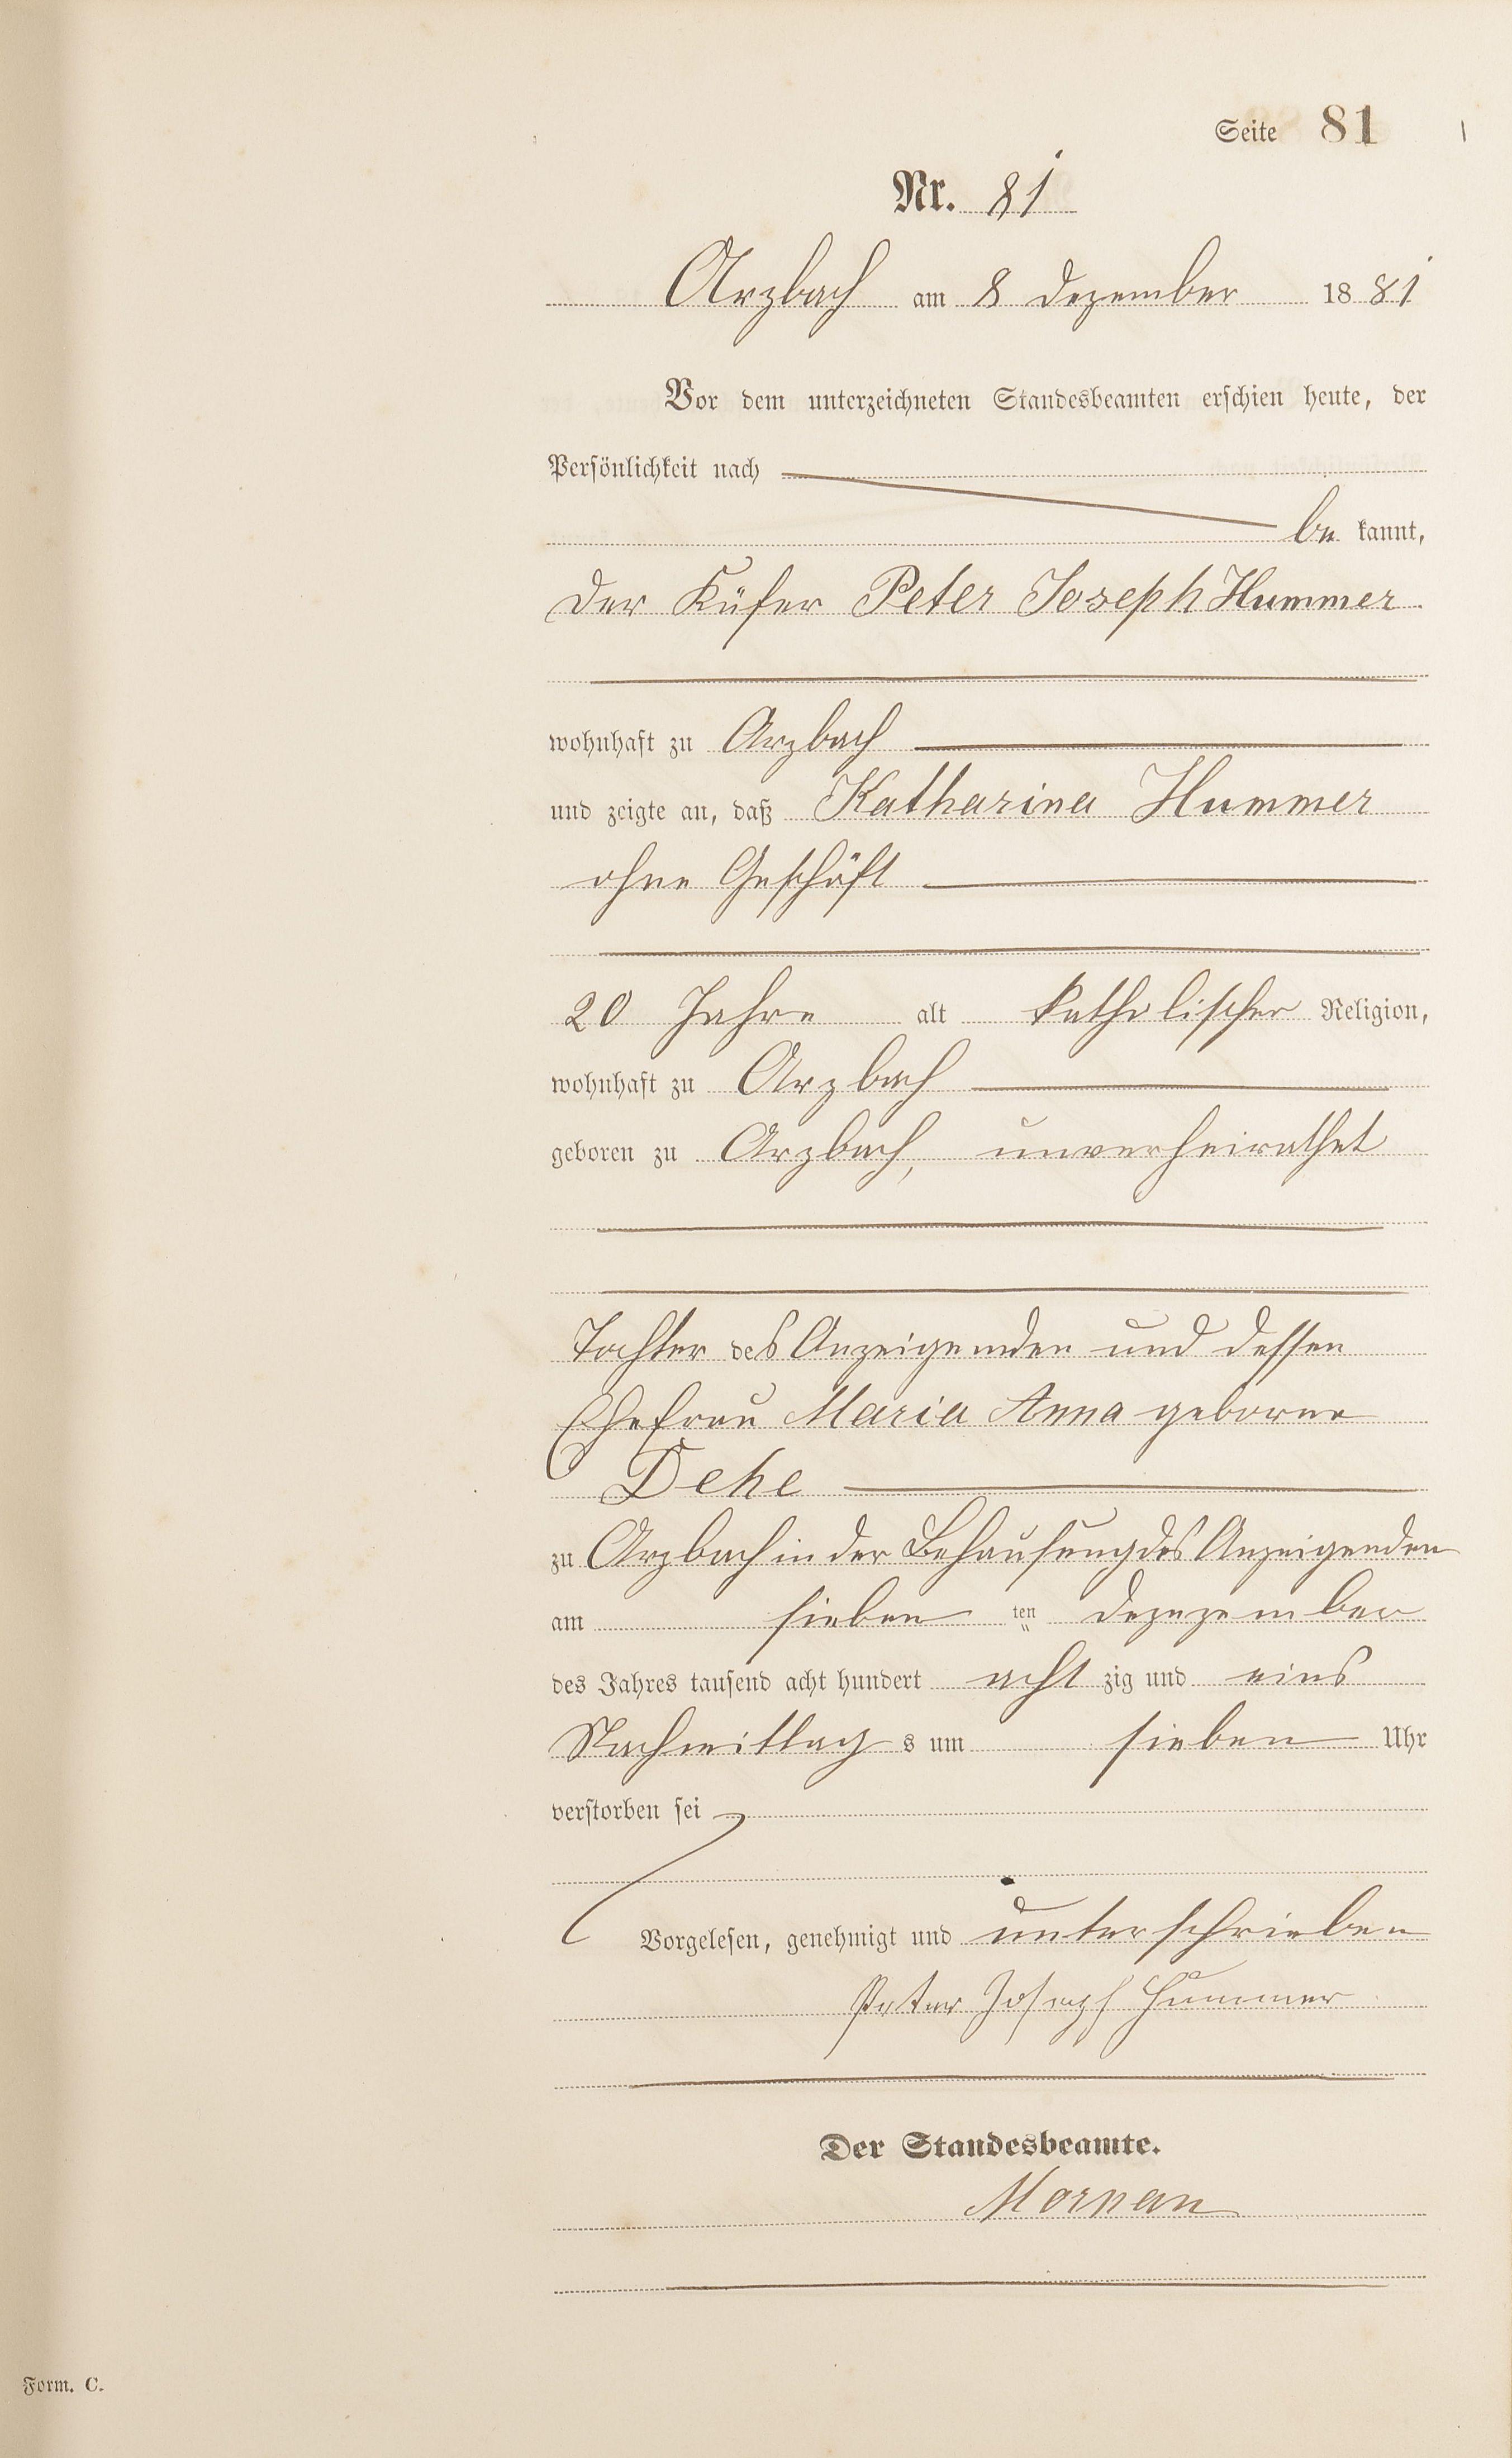 Seite 81
Nr. 81
Arzbach am 8 Dezember 1881
Vor dem unterzeichneten Standesbeamten erschien heute, der
Persönlichkeit nach
be kannt,
der Küfer Peter Joseph Hummer
wohnhaft zu Arzbach
und zeigte an, daß Katharina Hummer
ohne Geschäft
20 Jahre alt katholischer Religion,
wohnhaft zu Arzbach
geboren zu Arzbach, unverheirathet
Tochter des Anzeigenden und dessen
Ehefrau Maria Anna geborne
Dehe
zu Arzbach in der Behausung des Anzeigenden
am sieben ten Dezezember
des Jahres tausend acht hundert acht zig und eins
Nachmittag s um sieben Uhr
verstorben sei
Vorgelesen, genehmigt und unterschrieben
Peter Joseph Hummer
Der Standesbeamte.
Form. C.